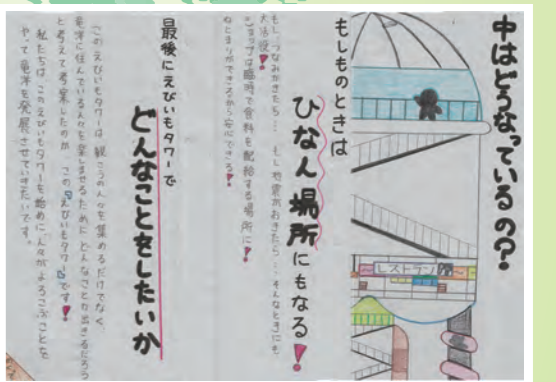 中はどうなっているの?
レストラン
もしものときは
ひなん場所にもなる!
もし、つなみがきたら… もし地震がおきたら… そんなときにも
大活役!
ショップは臨時で食料を配給する場所に!
ねとまりができるから安心できる!
最後にえびいもタワーで
どんなことをしたいか
このえびいもタワーは観こうの人々を集めるだけでなく、
竜洋に住んでいる人々を楽しませるためにどんなことが出きるだろう
と考えて考案したのが、この「えびいもタワー」です!
私たちは、このえびいもタワーを始めに、人々がよろこぶことを
やって竜洋を発展させていきたいです。